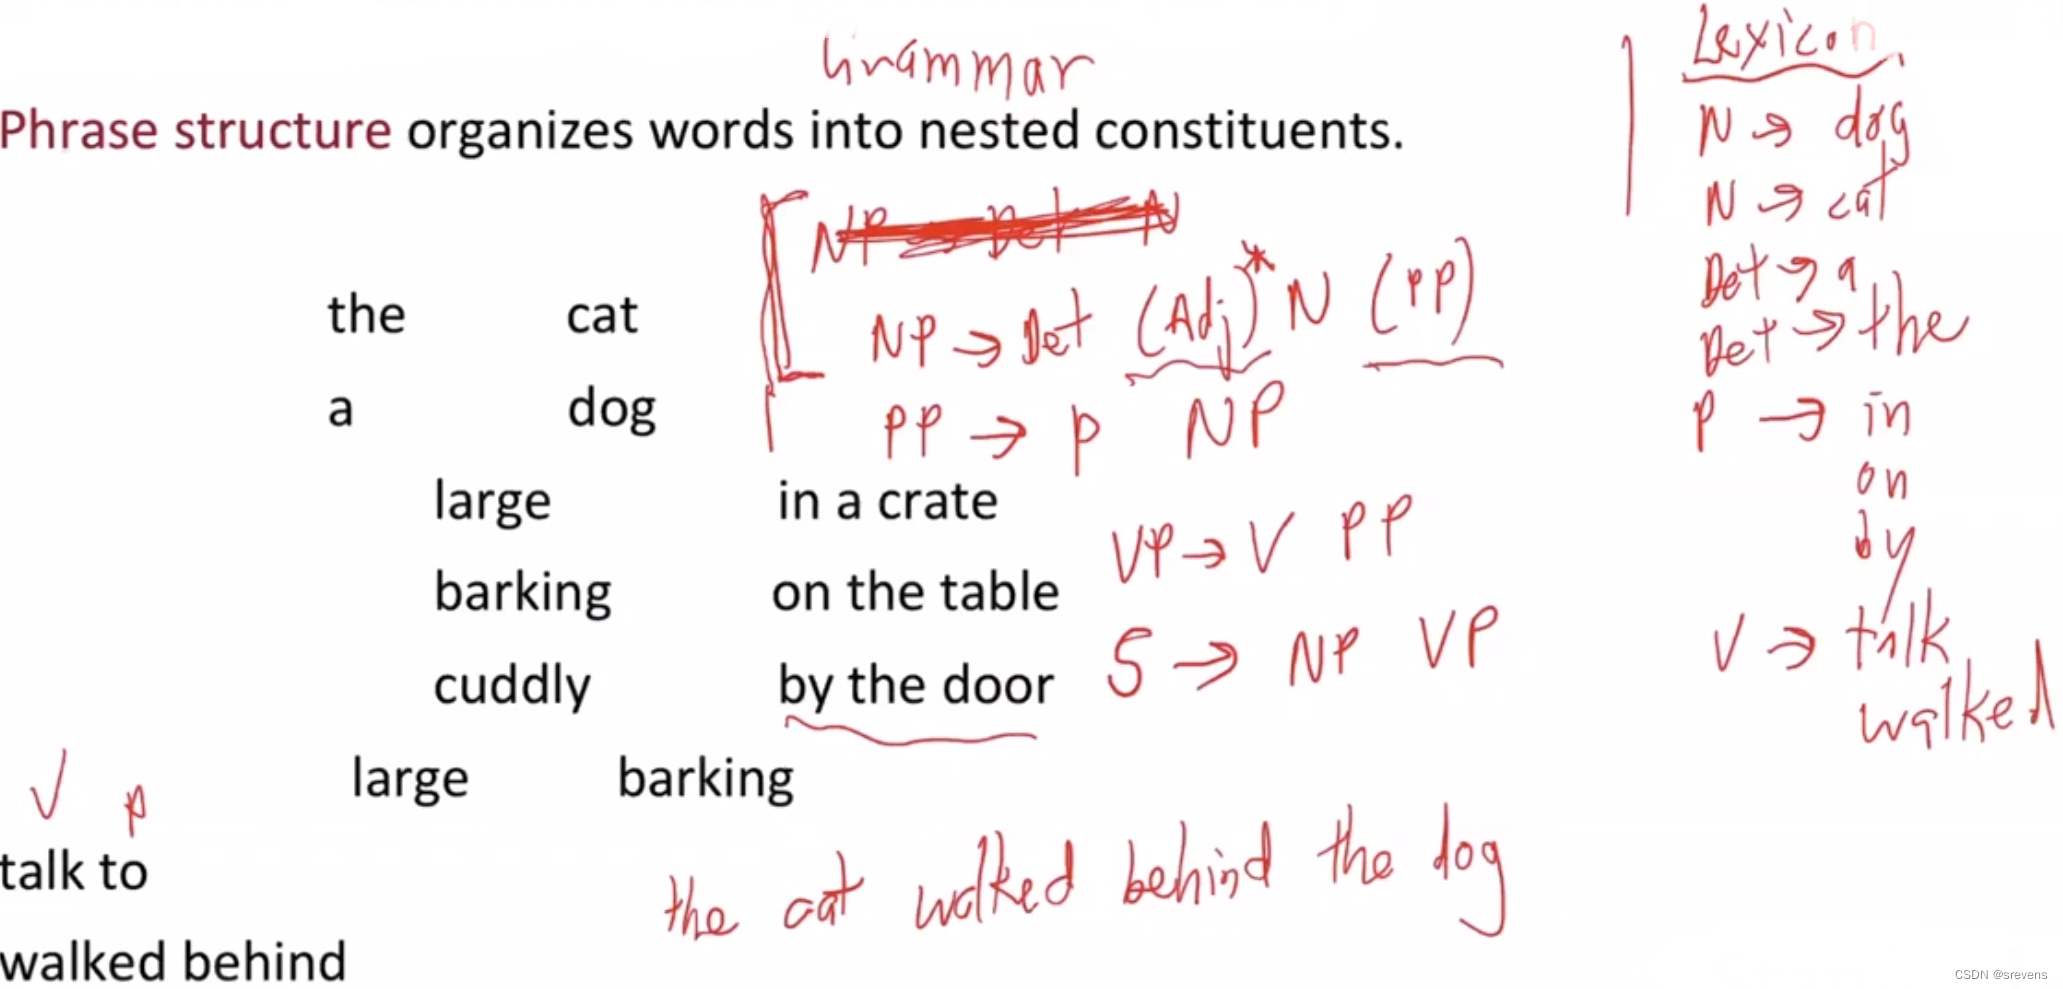 Grammar
Phrase structure organizes words into nested constituents.
NP → Det N
the cat
NP → Det (Adj)* N (PP)
a dog
PP → P NP
large in a crate
VP → V PP
barking on the table
S → NP VP
cuddly by the door
large barking
V P
talk to
the cat walked behind the dog
walked behind
Lexicon
N → dog
N → cat
Det → a
Det → the
P → in
on
by
V → talk
walked
CSDN @srevens